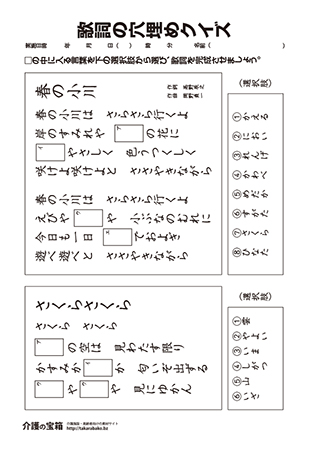 歌詞の穴埋めクイズ
実施日時　年　月　日（　）　時　分　名前（　）
□の中に入る言葉を下の選択肢から選び、歌詞を完成させましょう。
春の小川
作詞　高野辰之
作曲　岡野貞一
春の小川は　さらさら行くよ
岸のすみれや　ア　の花に
イ　やさしく　色うつくしく
咲けよ咲けよと　ささやきながら
春の小川は　さらさら行くよ
えびや　ウ　や　小ぶなのむれに
今日も一日　エ　でおよぎ
遊べ遊べと　ささやきながら
（選択肢）
①かえる
②におい
③れんげ
④かわべ
⑤めだか
⑥すがた
⑦さくら
⑧ひなた
さくらさくら
さくら　さくら
ア　の空は　見わたす限り
かすみか　イ　か　匂いぞ出ずる
ウ　や　ウ　や　見にゆかん
（選択肢）
①雲
②やよい
③いま
④しがつ
⑤山
⑥いざ
介護の宝箱
http://takarabako.be